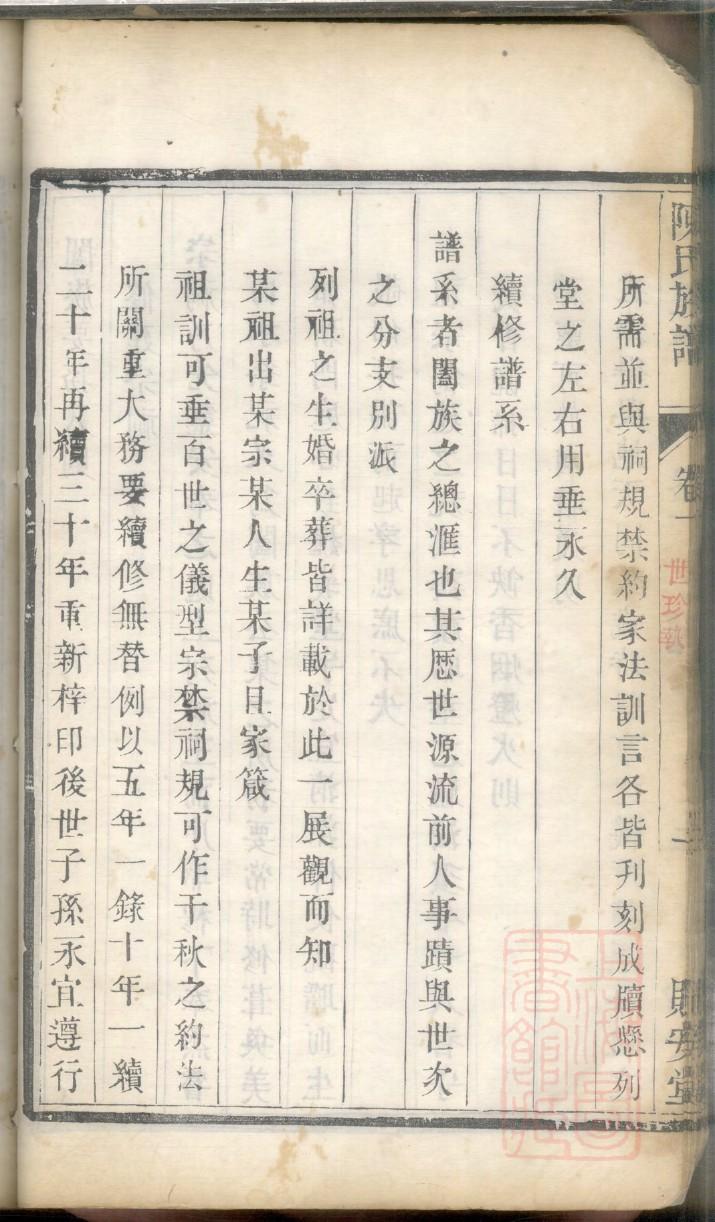 陳氏族譜 卷一
世珍
所需並與祠規禁約家法訓言各皆刋刻成牘懸列
堂之左右用垂永久
續修譜系
譜系者闔族之總滙也其歷世源流前人事蹟與世次
之分支別派
列祖之生婚卒葬皆詳載於此一展觀而知
某祖出某宗某人生某子且家箴
祖訓可垂百世之儀型宗禁祠規可作千秋之約法
所關重大務要續修無替例以五年一錄十年一續
二十年再續三十年重新梓印後世子孫永宜遵行